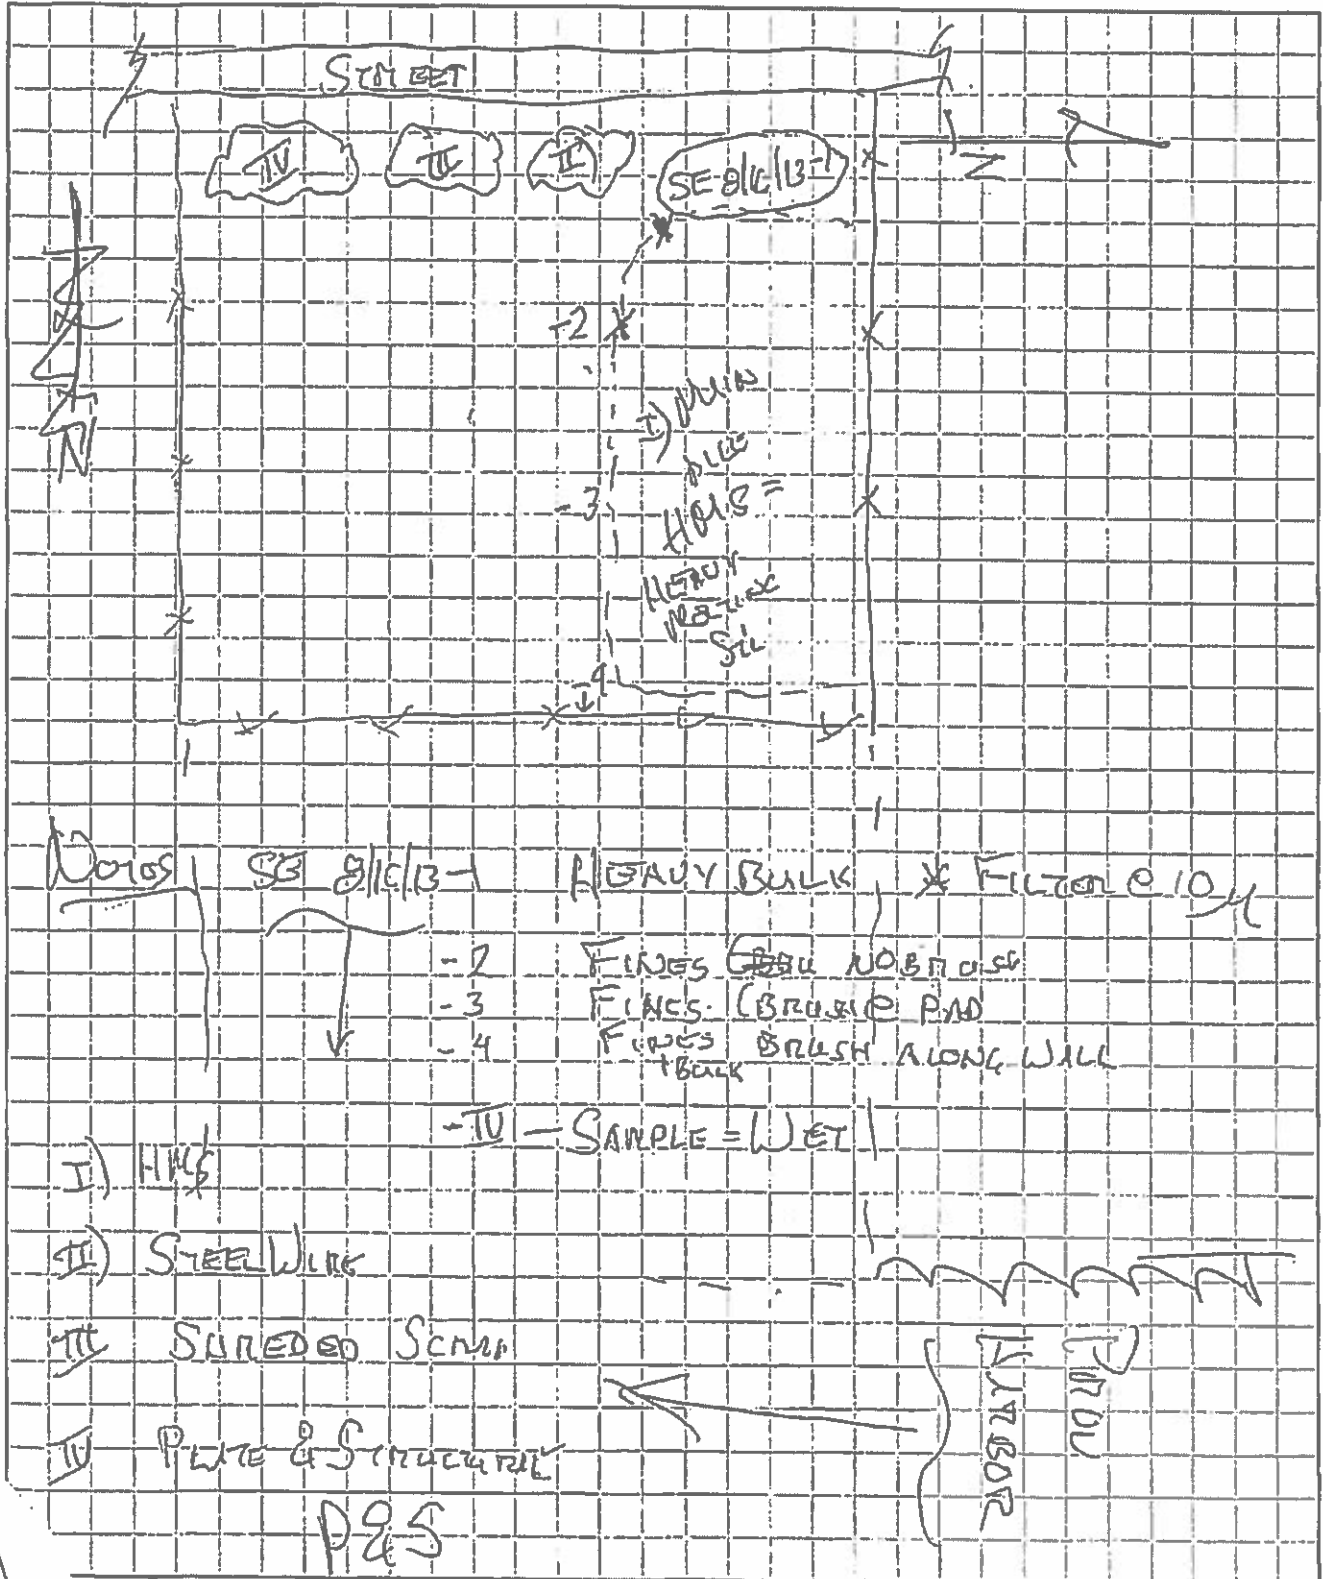 STREET
IV III II SE 8/16/13-1
N
N
-2
I) MAIN
PILE
HMS =
HEAVY
MELTING
STL
-3
-4
NOTES SE 8/16/13-1 HEAVY BULK * FILTER @ 10 µ
-2 FINES NO BRUSH
-3 FINES (BRUSH @ PAD
-4 FINES BRUSH ALONG WALL
+ BULK
-IV - SAMPLE = WET
I) HMS
II) STEEL WIRE
III SHREDED SCRAP
IV PLATE & STRUCTURAL
P&S
PROV
HARBOR